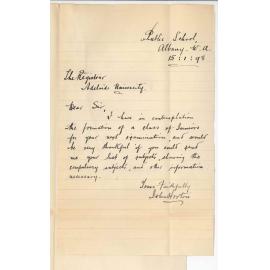 Public School,
Albany W.A
15:1:98
The Registrar
Adelaide University.
Dear Sir,
I have in contemplation
the formation of a class of Juniors
for your next examination and would
be very thankful if you could send
me your list of subjects, showing the
compulsory subjects, and other information
necessary.
Yours faithfully
John Horton